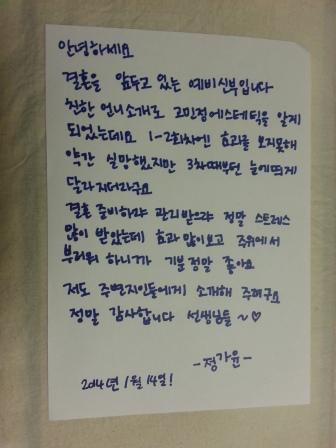 안녕하세요
결혼을 앞두고 있는 예비신부입니다
친한 언니소개로 고민정에스테틱을 알게
되었는데요 1-2회차엔 효과를 보지못해
약간 실망했지만 3차때부턴 눈에띄게
달라지더라구요
결혼 준비하랴 관리받으랴 정말 스트레스
많이 받았는데 효과많이보고 주위에서
부러워 하니까 기분정말 좋아요
저도 주변지인들에게 소개해
정말 감사합니다 선생님들~♡
-정가윤-
2014년 1월 14일!